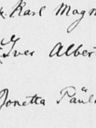 Karl Magn
Iver Alber
Jonetta Paul